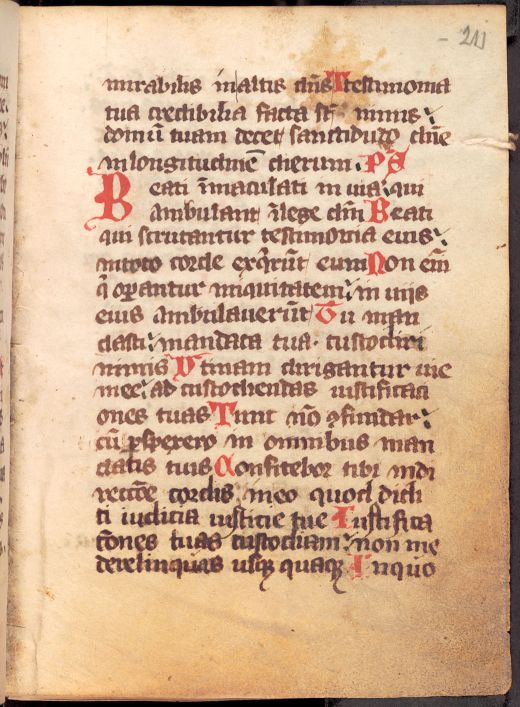 211
mirabilis in altis dn̄s Testimonia
tua credibilia facta st̄ nimis
domū tuam decet sanctitudo dn̄e
in longitudinē dierum. Ps
Beati īmaculati in uia qui
ambulant ī lege dn̄i Beati
qui scrutantur testimonia eius
in toto corde exq̄rūt eum Non em̄
q̄ oꝑantur iniquitatem in uijs
eius ambulauerūt Tu man
dasti mandata tua custodiri
nimis Vtinam dirigantur uie
mee ad custodiendas iustificati
ones tuas Tunc nō ꝯfundar
cū ꝑspexero in omnibus man
datis tuis Confitebor tibi in di
rectōe cordis meo quod didi
ci iudicia iusticie tue Iustifica
cōnes tuas custodiam non me
derelinquas usqꝫ quaqꝫ In quo